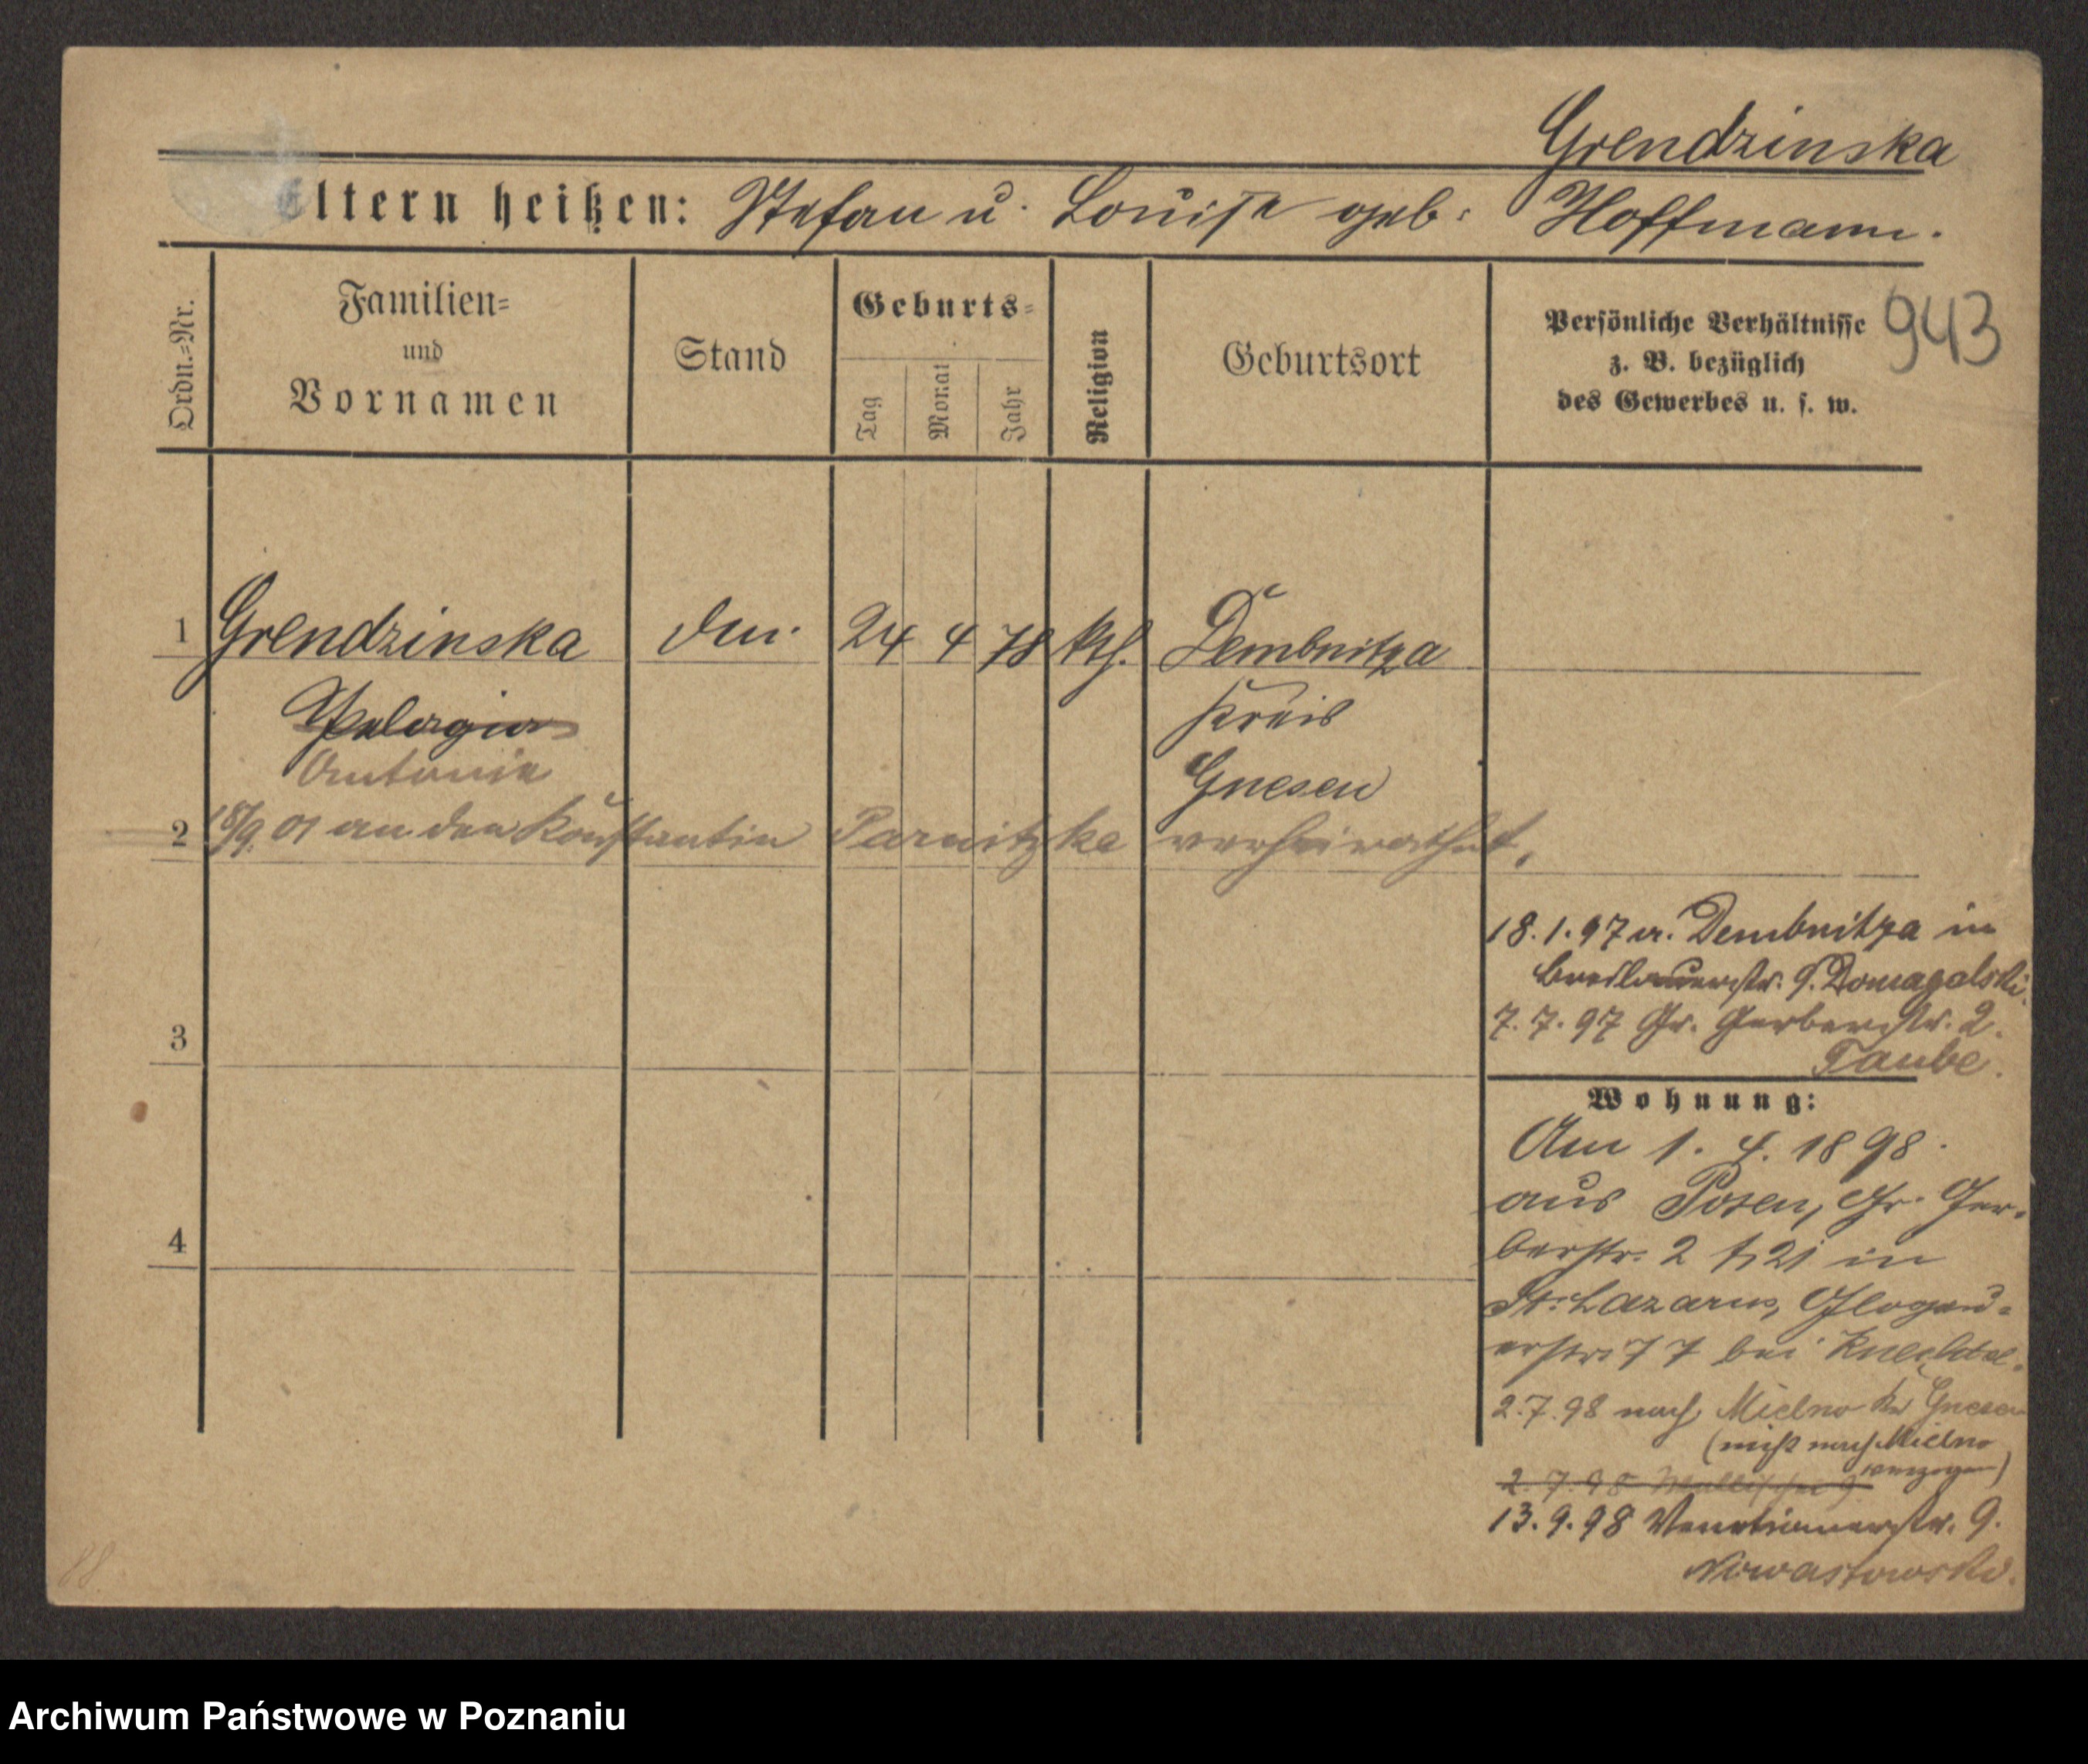 Grendzinska
Eltern heißen: Stefan u. Louise geb. Hoffmann.
Ordn.=Nr.
Familien=
und
Vornamen
Stand
Geburts=
Tag
Monat
Jahr
Religion
Geburtsort
Persönliche Verhältnisse
z. B. bezüglich
des Gewerbes u. s. w.
943
1 Grendzinska 24 4 78 kth. Dembnitza
Pelagia
Kreis
Antonie
Gnesen
2 18/9. 01 an den Konstantin Parnitzke verheirathet.
18. 1. 97 a. Dembnitza in
Breslauerstr. 9. Domagalski.
3 7. 7. 97 Gr. Gerberstr. 2.
Taube.
Wohnung:
Am 1. 4. 1898.
aus Posen, Gr. Ger-
4 berstr. 2 in
St. Lazarus, Glogau-
erstr. 77 bei Knechtel.
2. 7. 98 nach Mielno Kr. Gnesen
(nicht nach Mielno
verzogen)
2. 7. 98
13. 9. 98 Venetianerstr. 9.
Nowastowski.
88
Archiwum Państwowe w Poznaniu